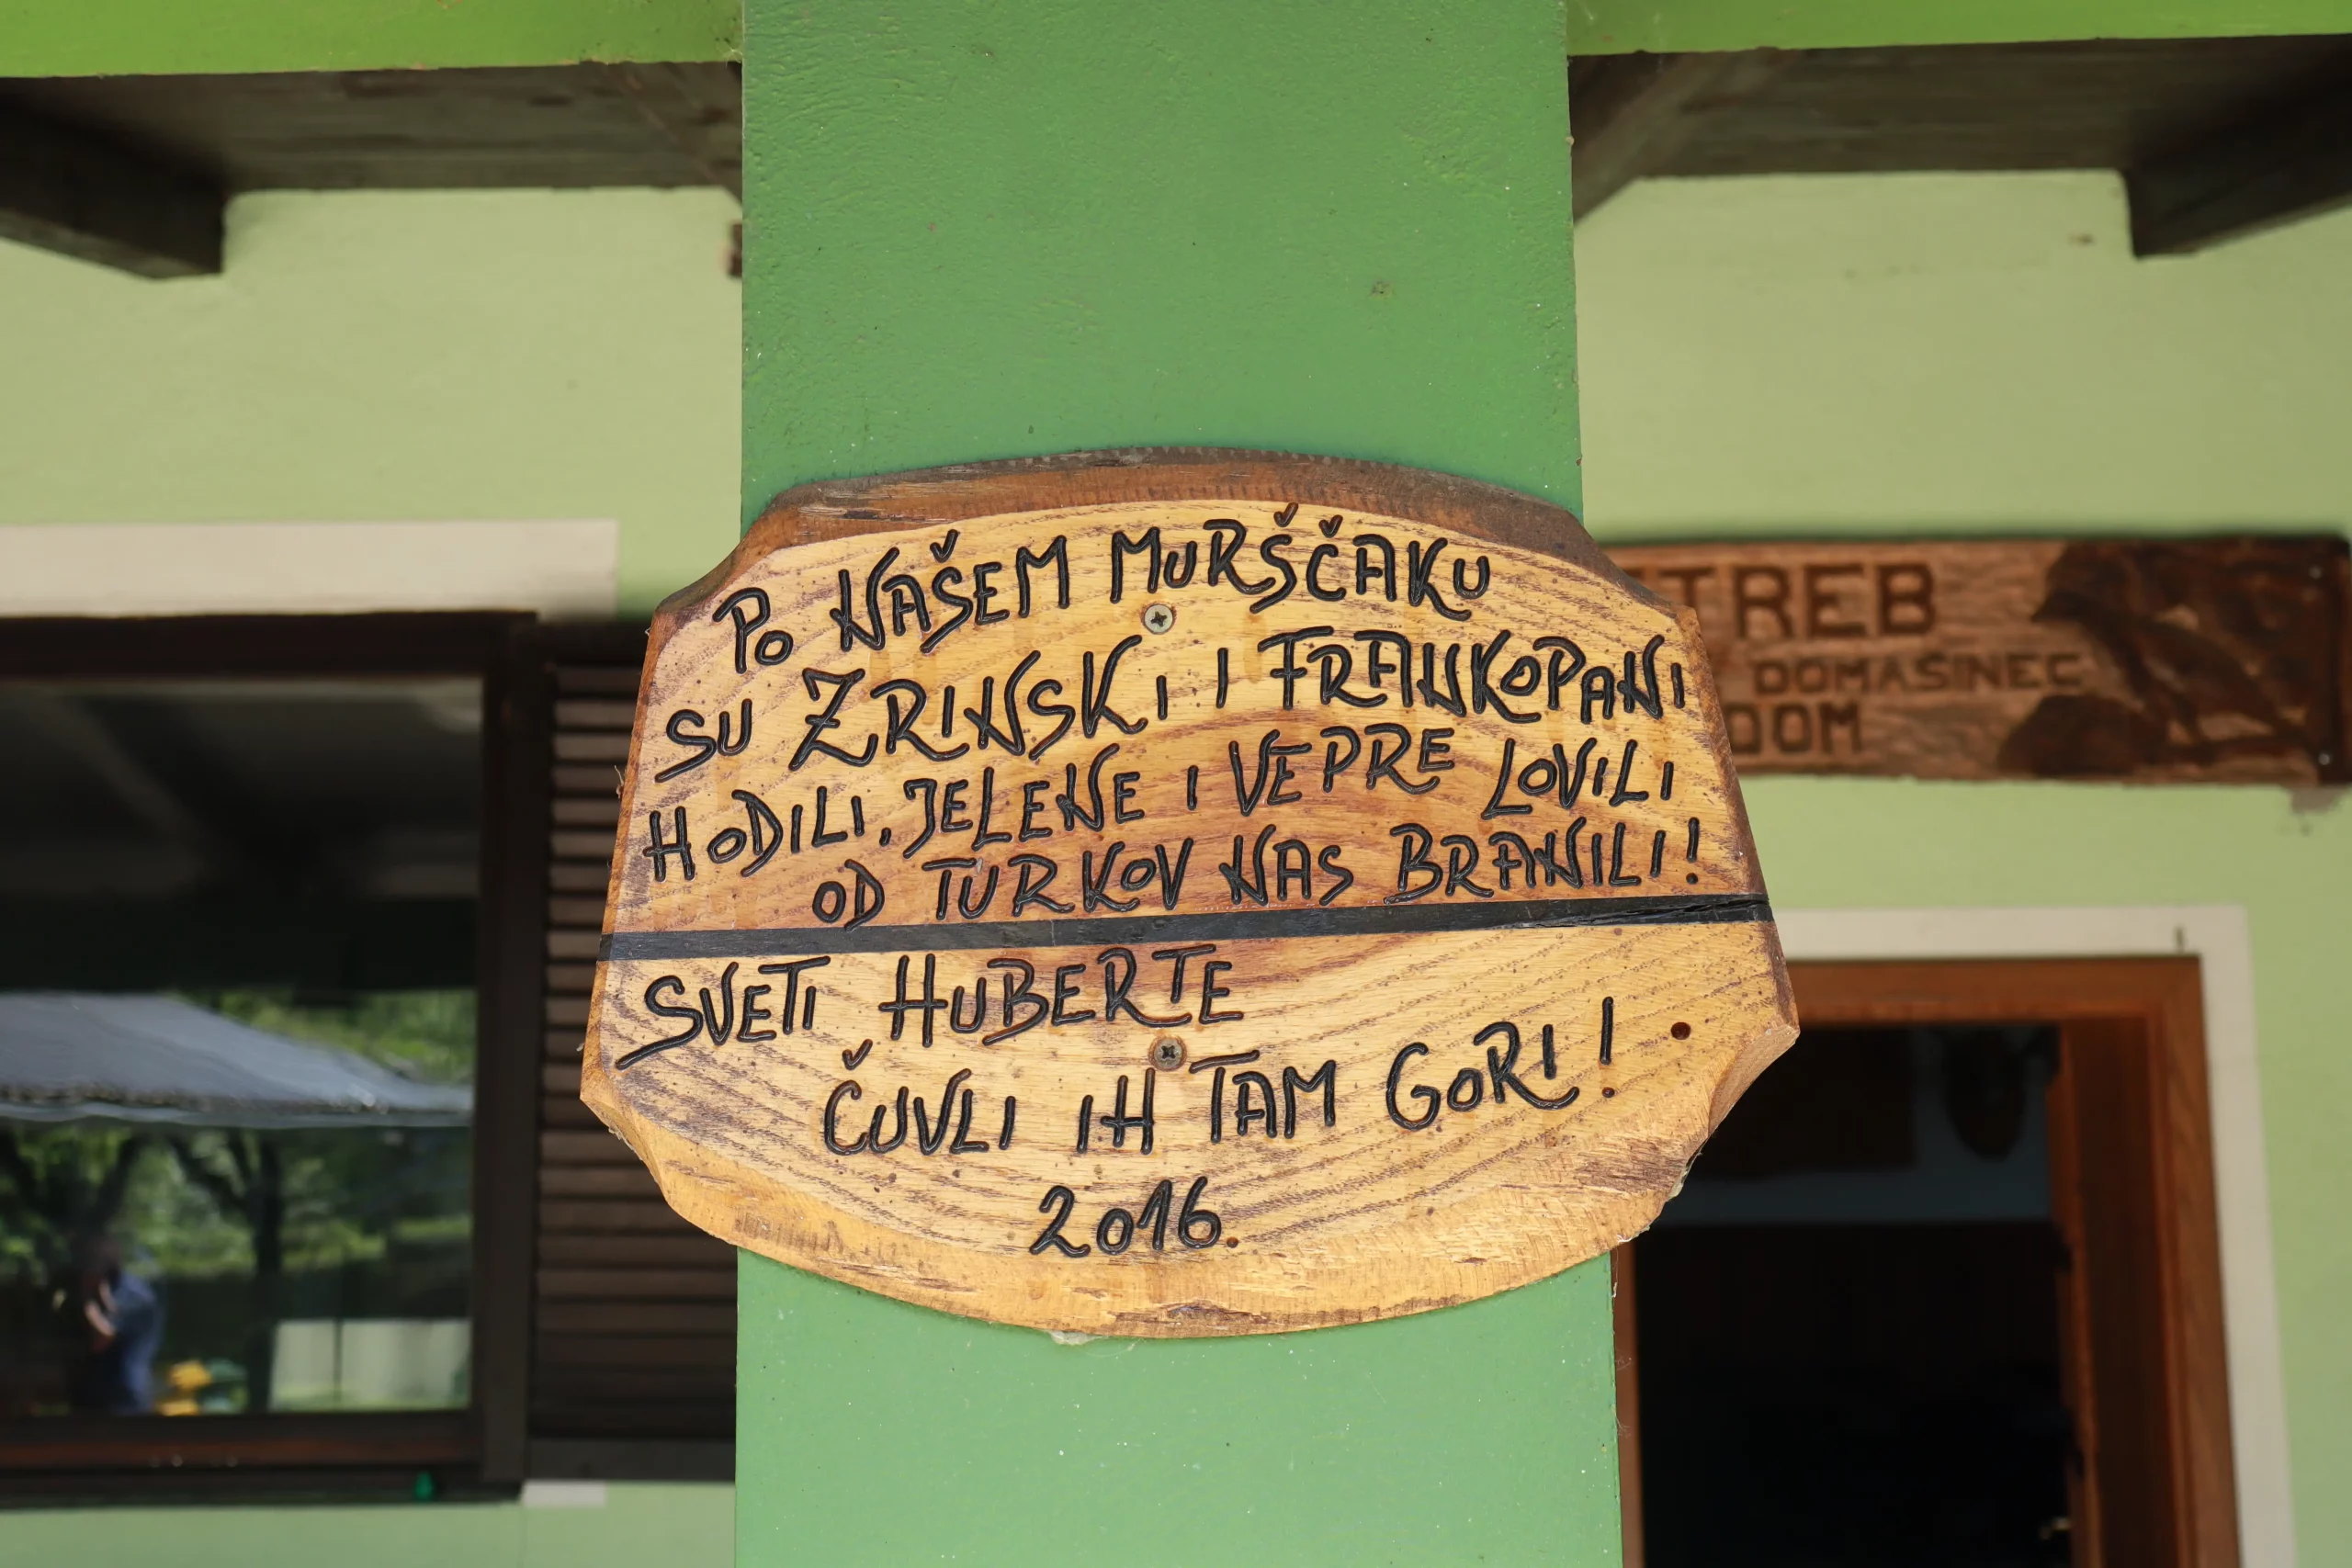 PO NAŠEM MURŠČAKU
SU ZRINSKI I FRANKOPANI
HODILI, JELENE I VEPRE LOVILI
OD TURKOV NAS BRANILI!
SVETI HUBERTE
ČUVLI IH TAM GORI!
2016.
TREB
DOMAŠINEC
DOM